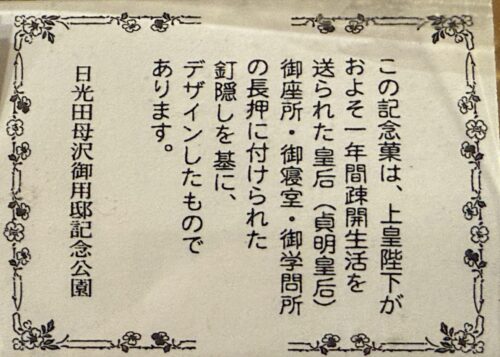 この記念菓は、上皇陛下が
およそ一年間疎開生活を
送られた皇后（貞明皇后）
御座所・御寝室・御学問所
の長押に付けられた
釘隠しを基に、
デザインしたもので
あります。
日光田母沢御用邸記念公園